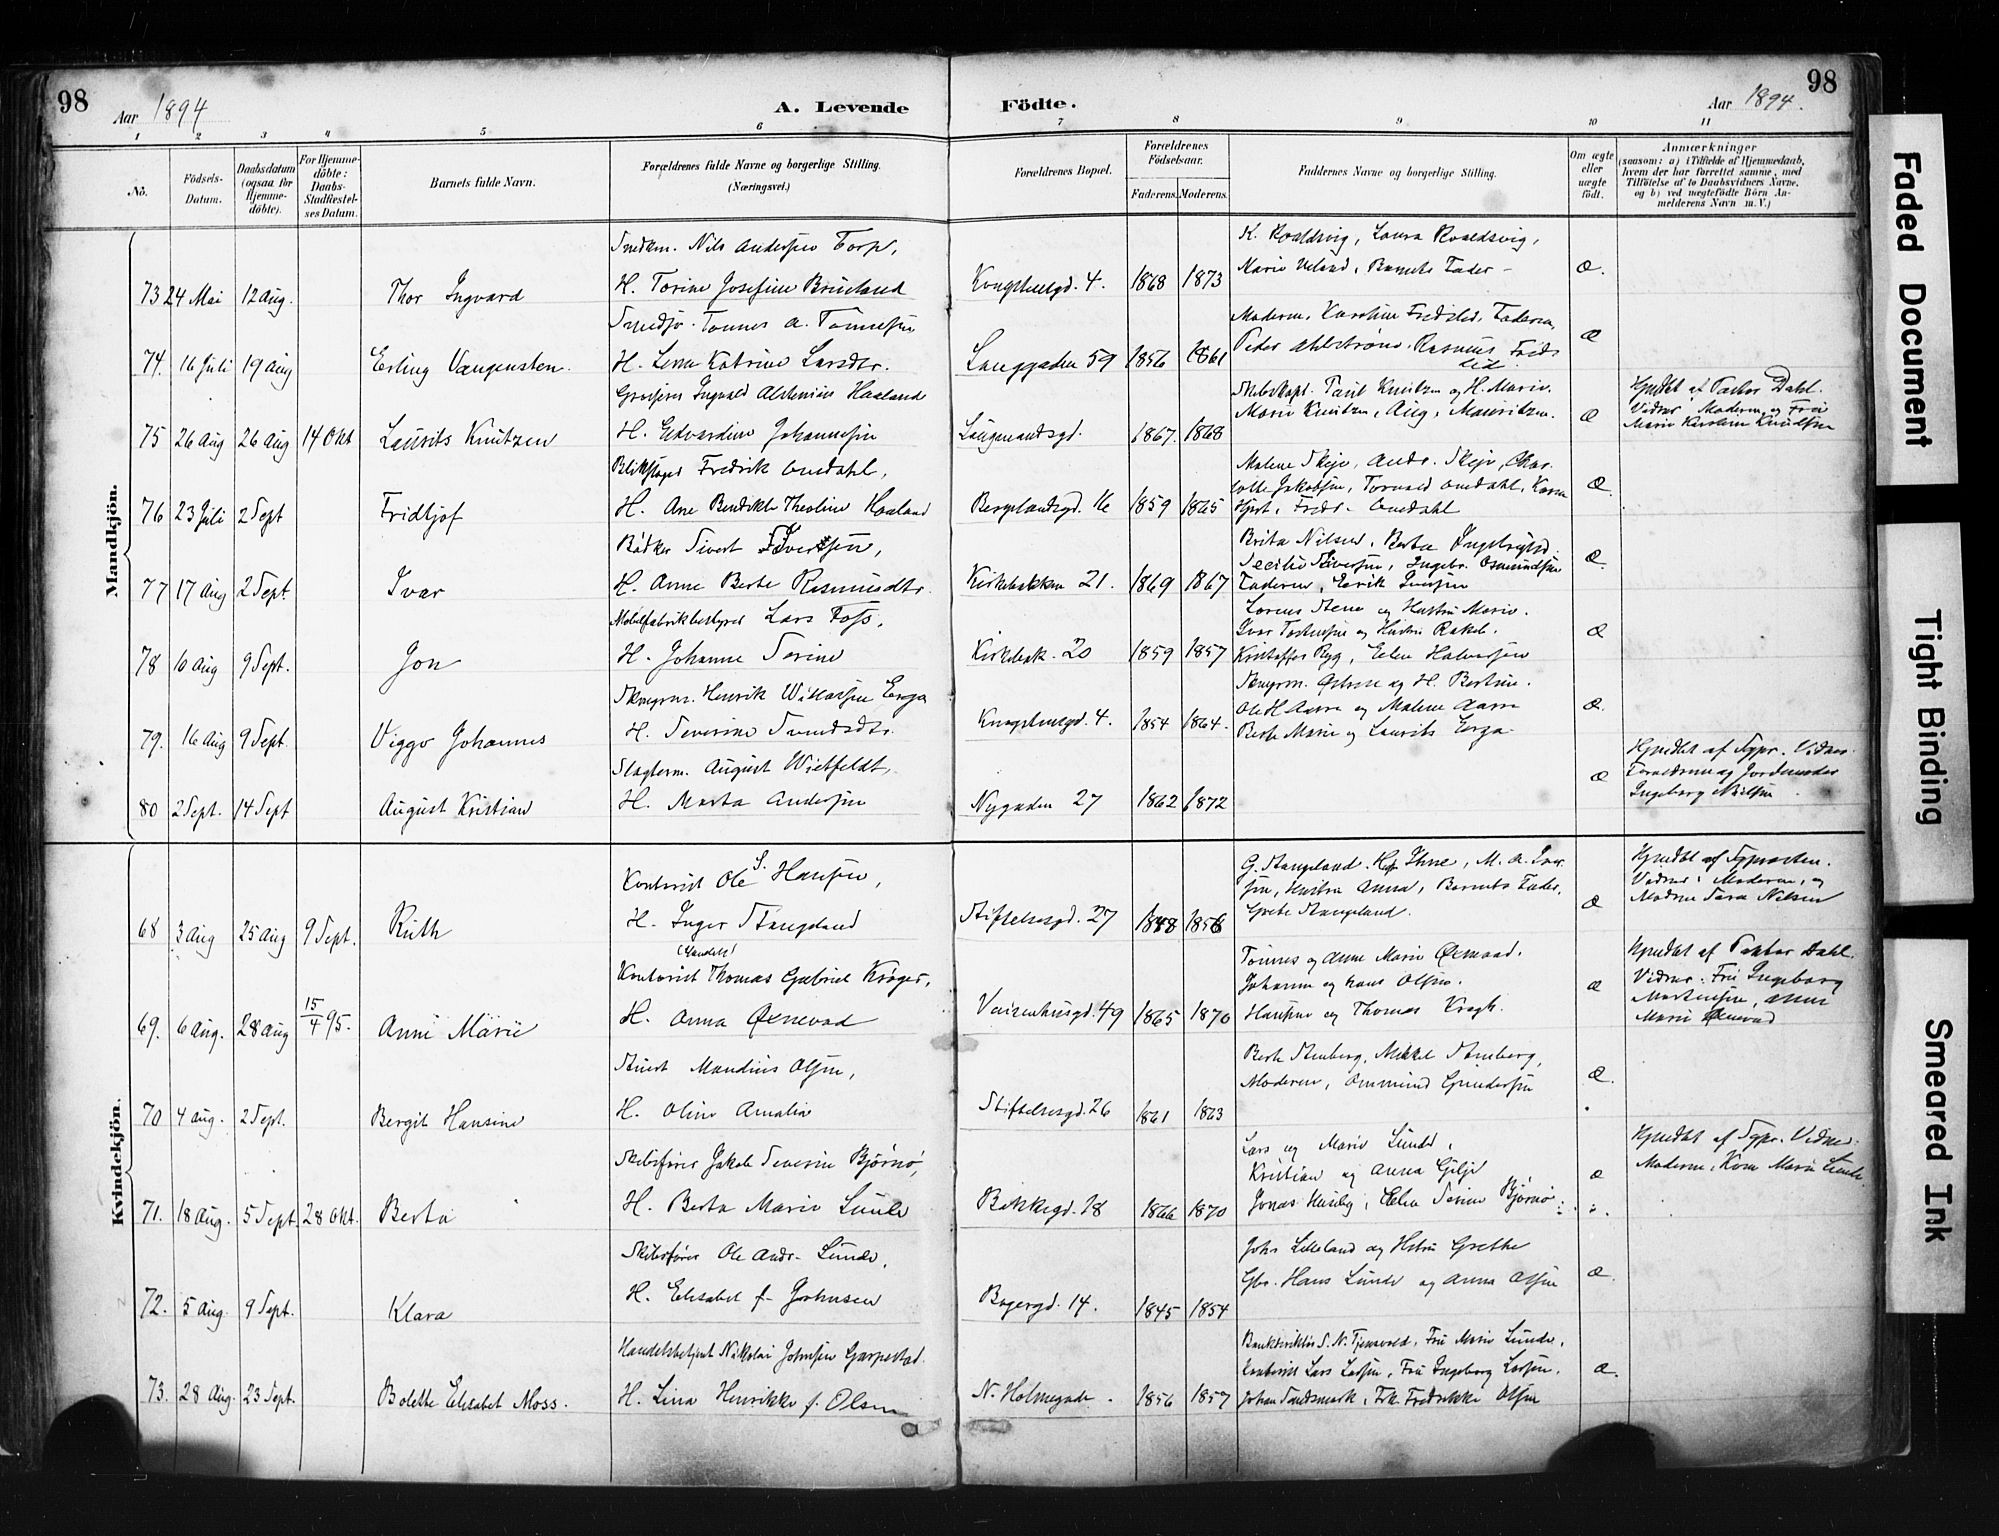 98
Aar 1894
A. Levende Födte.
Aar 1894.
98
1 2 3 4 5 6 7 8 9 10 11
No.
Födsels-Datum.
Daabsdatum (ogsaa for Hjemme-döbte).
For Hjemme-döbte: Daabs-Stadfæstel-ses Datum.
Barnets fulde Navn.
Forældrenes fulde Navne og borgerlige Stilling. (Næringsvei.)
Forældrenes Bopæl.
Forældrenes Födselsaar.
Faderens. Moderens.
Faddernes Navne og borgerlige Stilling.
Om ægte eller uægte födt.
Anmærkninger
(saasom: a) i Tilfælde af Hjemmedaab, hvem der har forrettet samme, med Tilföielse af to Daabsvidners Navne, og b) ved uægtefödte Börn An-melderens Navn m. V.)
Mandkjön.
Snedkm. Nils Andersen Torp,
K. Roaldsvig, Laura Roaldsvig,
73 24 Mai 12 Aug. Thor Ingvard
H. Torine Josefine Brueland
Kongsteusgd. 4. 1868 1873
Marie Ueland, Barnets Fader - Æ.
Smedsv. Tønnes A. Tønnesen
Moderen, Karoline Fredslid, Faderen,
74. 16 Juli 19 Aug Erling Vangensten.
H. Lena Katrine Larsdtr.
Langgaden 59 1856 1861
Peder Ahlstrøm, Rasmus Frids
lid. Æ
Grosserer Ingvald Alstenius Haaland
75 26 Aug 26 Aug 14 Okt Laurits Knutzen
H. Edvardine Johannesen
Laugmandsgd. 1867. 1868
Skibskapt. Paul Knutzen og H. Marie.
Marie Knutzen, Aug. Mauritzen. Æ
Hjmdbt af Pastor Dahl.
Vidner Moderen og Frü
Marie Kirstine Knudsen
Blikslager Fredrik Omdahl,
76 23 Juli 2 Sept Fridtjof
H. Ane Bendikte Theoline Haaland
Bergelandsgd. 16 1859 1865
Malene Skeje, Andr. Skeje, Char
lotte Jakobsen, Torvald Omdahl, Karen
Hjort, Fredr. Omdahl Æ.
Bödker Sivert Iversen,
77 17 Aug 2 Sept. Ivar
H. Anne Berte Rasmusdtr.
Kirkebakken 21. 1869 1867
Brita Nilsen, Berta Ingebrigtsd.
Secilie Sivertsen, Ingebr. Osmundsen
Faderen, Eerik Iversen Æ.
Møbelfabrikbestyrer Lars Foss,
78 10 Aug 9 Sept. Jon
H. Johanne Serine
Kirkebak. 20 1859 1857
Lorens Stene og Hustru Marie.
Ivar Torkensen og Hustru Rakel.
Kristoffer Ryg, Elen Halvorsen Æ
Skomagerm. Henrik Willassen Erga
79. 16 Aug 9 Sept. Viggo Johannes
H. Severine Svendsdtr.
Kongsteusgd. 4. 1854 1864.
Skomgrm. Østrem og H. Bertine.
Ole H Aarre og Malene Aarre
Berte Marie og Laurits Erga. Æ.
Slagterm. August Wietfeldt,
80 2 Sept. 14 Sept August Kristian
H. Marta Andersen
Nygaden 27 1862 1872 Æ
Hjmdbt af Sgpr. Vidner
Forældrene og Jordemoder
Ingeborg Nielsen.
Kvindekjön.
Kontorist Ole S. Hansen,
68 3 Aug 25 Aug 9 Sept. Ruth
H. Inger Stangeland
Stiftelsesgd. 27 1848 1858
G. Stangeland. H. Thne, M. A. Iver
sen, Hustru Anna, Barnets Fader,
Grete Stangeland. Æ
Hjmdbt af Sgpresten.
Vidner: Moderen, og
Madm Sara Nilsen
(Handels)
Kontorist Thomas Gabriel Krøger,
69. 6 Aug. 28 Aug 15/4 95. Anne Marie
H. Anna Øxnevad
Vaisenhusgd. 49 1865 1870
Tönnes og Anne Marie Øxnevad.
Johanne og Hans Olsen.
Hansine og Thomas Kragh. Æ
Hjmdbt af Pastor Dahl.
Vidner: Frü Ingeborg
Mortensen, Anne
Marie Øxnevad
Stuert Mandius Olsen,
70 4 Aug. 2 Sept. Bergit Hansine
H. Oline Amalia
Stiftelsesgd. 26 1861 1863
Berte Stenberg, Mikkel Stenberg,
Moderen, Ommund Gundersen Æ.
Skibsfører Jakob Severin Bjørnø,
71. 18 Aug. 5 Sept 28 Okt. Berta
H. Berta Marie Lunde
Bakkegd. 18 1866 1870
Lars og Marie Lunde,
Kristian og Anna Gilje
Jonas Husebø, Elen Serine Bjørnø Æ
Hjmdbt af Sgpr. Vidner
Moderen, Kone Marie Lunde.
Skibsfører Ole Andr. Lunde,
72. 5 Aug. 9 Sept. Klara
H. Elisabet f. Johnsen
Bagergd. 14. 1845 1854
Johs Lilleland og Hstru Grethe
Gbr. Hans Lunde og Anna Olsen Æ.
Handelsbetjent Nikolai Johnsen Garpestad.
73. 28 Aug. 23 Sept. Bolette Elisabet Moss.
H. Lina Henrikke f. Olsen
N. Holmegade. 1856 1857
Bankdirektör S. N. Tjensvold, Frü Marie Lunde,
Kontorist Lars Larsen, Frü Ingeborg Larsen.
Johan Sandsmark, Frk. Fredrikke Olsen Æ.
Faded Document
Tight Binding
Smeared Ink